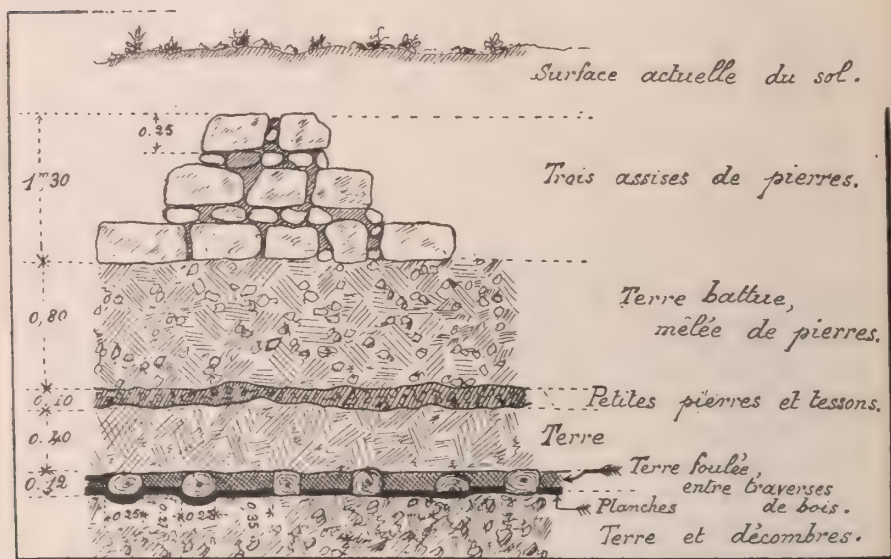 Surface actuelle du sol.
0.25
1m30
Trois assises de pierres.
0,80
Terre battue,
mêlée de pierres.
0.10
Petites pierres et tessons.
0.40
Terre
0.12
Terre foulée,
entre traverses
de bois.
Planches
0.25
0.23
0.35
Terre et décombres.